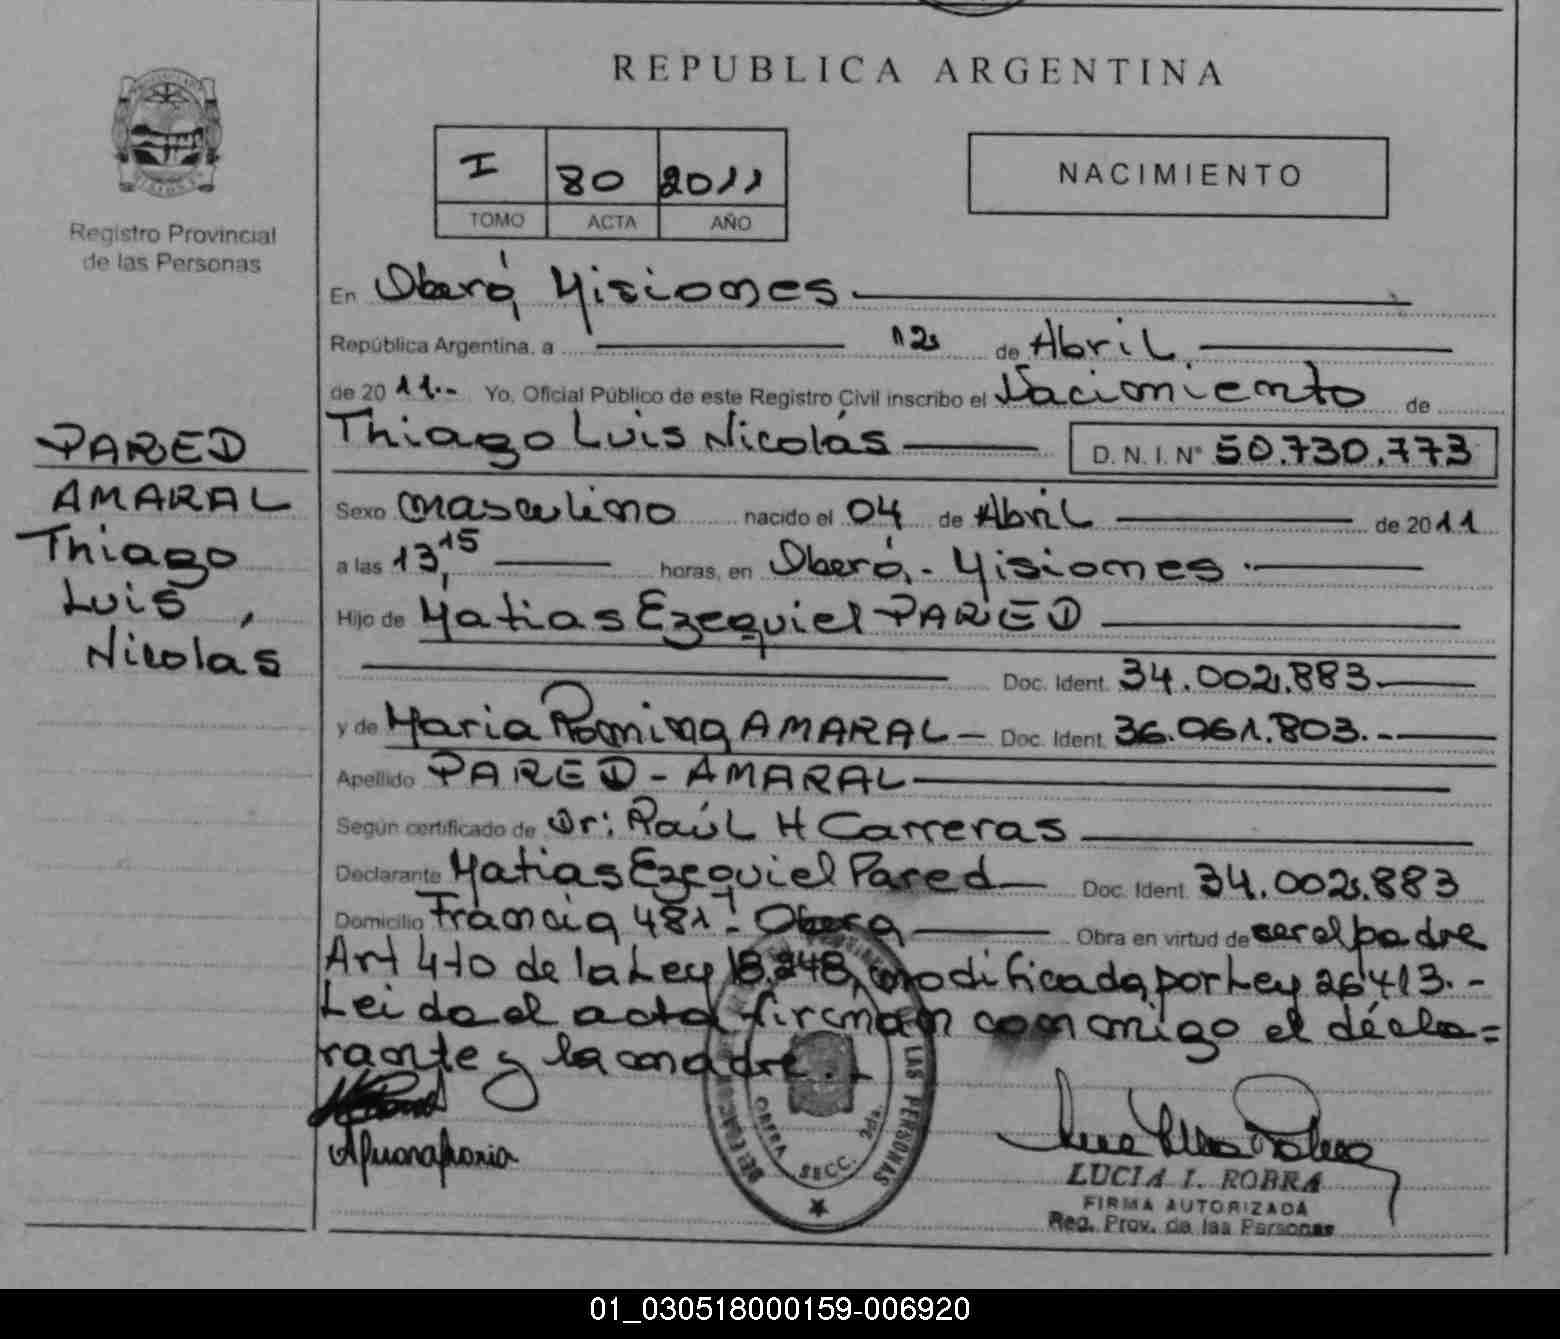 REPUBLICA ARGENTINA
I 80 2011
TOMO ACTA AÑO
NACIMIENTO
Registro Provincial
de las Personas
PARED
AMARAL
Thiago
Luis
Nicolás
En Oberá, Misiones
República Argentina, a 12 de Abril
de 2011.- Yo, Oficial Público de este Registro Civil inscribo el Nacimiento de
Thiago Luis Nicolás D. N. I. N° 50.730.773
Sexo masculino nacido el 04 de Abril de 2011
a las 13,15 horas, en Oberá,- Misiones.
Hijo de Matias Ezequiel PARED
Doc. Ident. 34.002.883.
y de Maria Romina AMARAL - Doc. Ident. 36.061.803.-
Apellido PARED - AMARAL
Según certificado de Dr: Raúl H Carreras
Declarante Matias Ezequiel Pared Doc. Ident. 34.002.883
Domicilio Francia 481 - Obera Obra en virtud de ser el padre
Art 4to de la Ley 18.248, modificada por Ley 26413.-
Leida el acta firman conmigo el decla=
rante y la madre.-
LAS PERSONAS
OBERA SECC.
LUCIA I. ROBRA
FIRMA AUTORIZADA
Reg. Prov. de las Personas
01_030518000159-006920